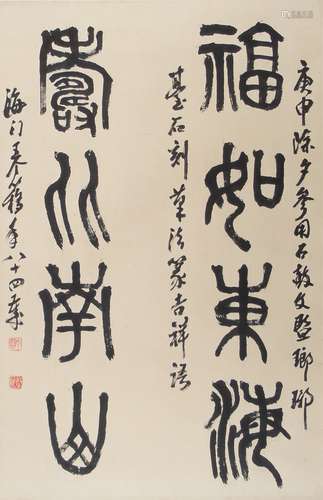 庚申除夕參用石鼓文暨瑯琊
福如東海
臺石刻草法篆吉祥語
壽比南山
海门王个簃年八十四歲